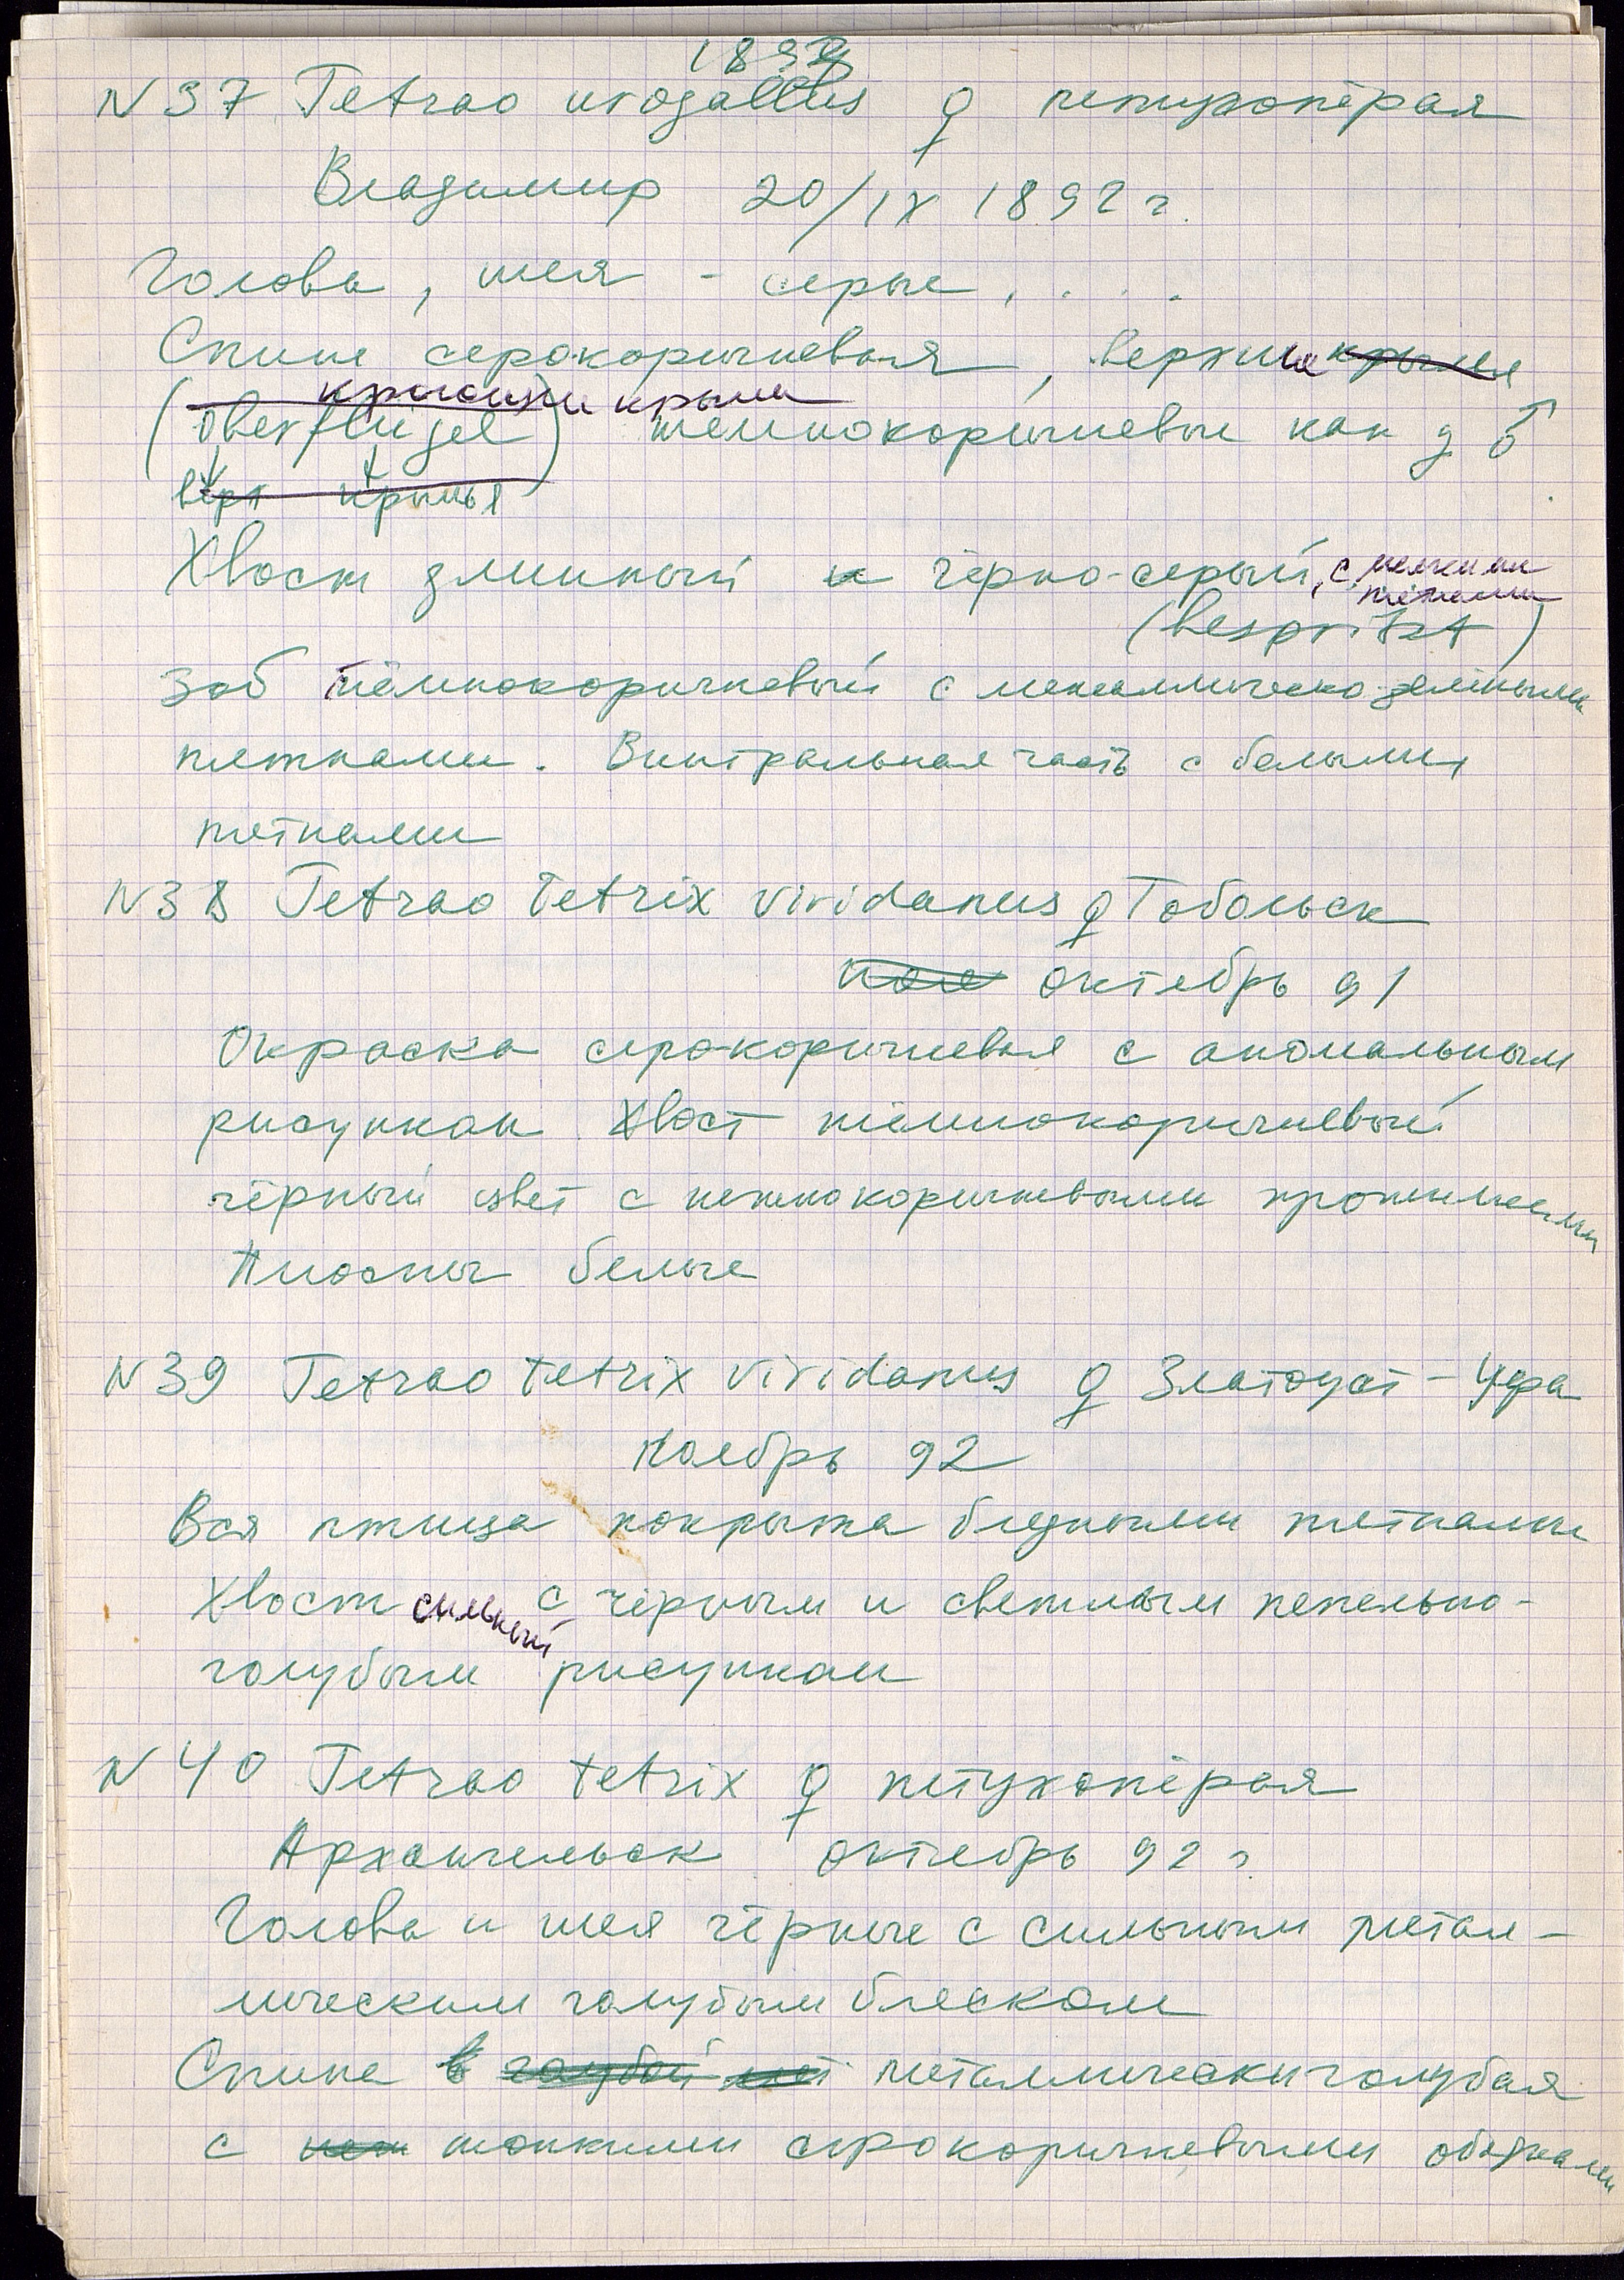 1892
N 37 Tetrao urogallus ♀ петухопёрая
Владимир 20/IX 1892 г.
Голова, шея - серые, . . .
Спина серокоричневая, верхние крылья
кроющие крыла
(Oberflügel) темнокоричневые как у ♂
верх крылья
Хвост длинный и чёрно-серый, с мелкими
пятнами
(bespritzt)
Зоб тёмнокоричневый с металлическо-зелёными
пятнами. Вентральная часть с белыми
пятнами
N 38 Tetrao tetrix viridanus ♀ Тобольск
октябрь 91
Окраска серокоричневая с аномальным
рисунком. Хвост тёмнокоричневый
чёрный цвет с нежнокоричневыми
белые
N 39 Tetrao tetrix viridanus ♀ Златоуст - Уфа
Ноябрь 92
Вся птица покрыта бледными пятнами
Хвост сильный с чёрным и светлым пепельно-
голубым рисунком
N 40 Tetrao tetrix ♀ петухопёрая
Архангельск октябрь 92 г.
Голова и шея чёрные с сильным метал-
лическим голубым блеском
Спина в голубой мет металлически голубая
с тонкими серокоричневыми ободками